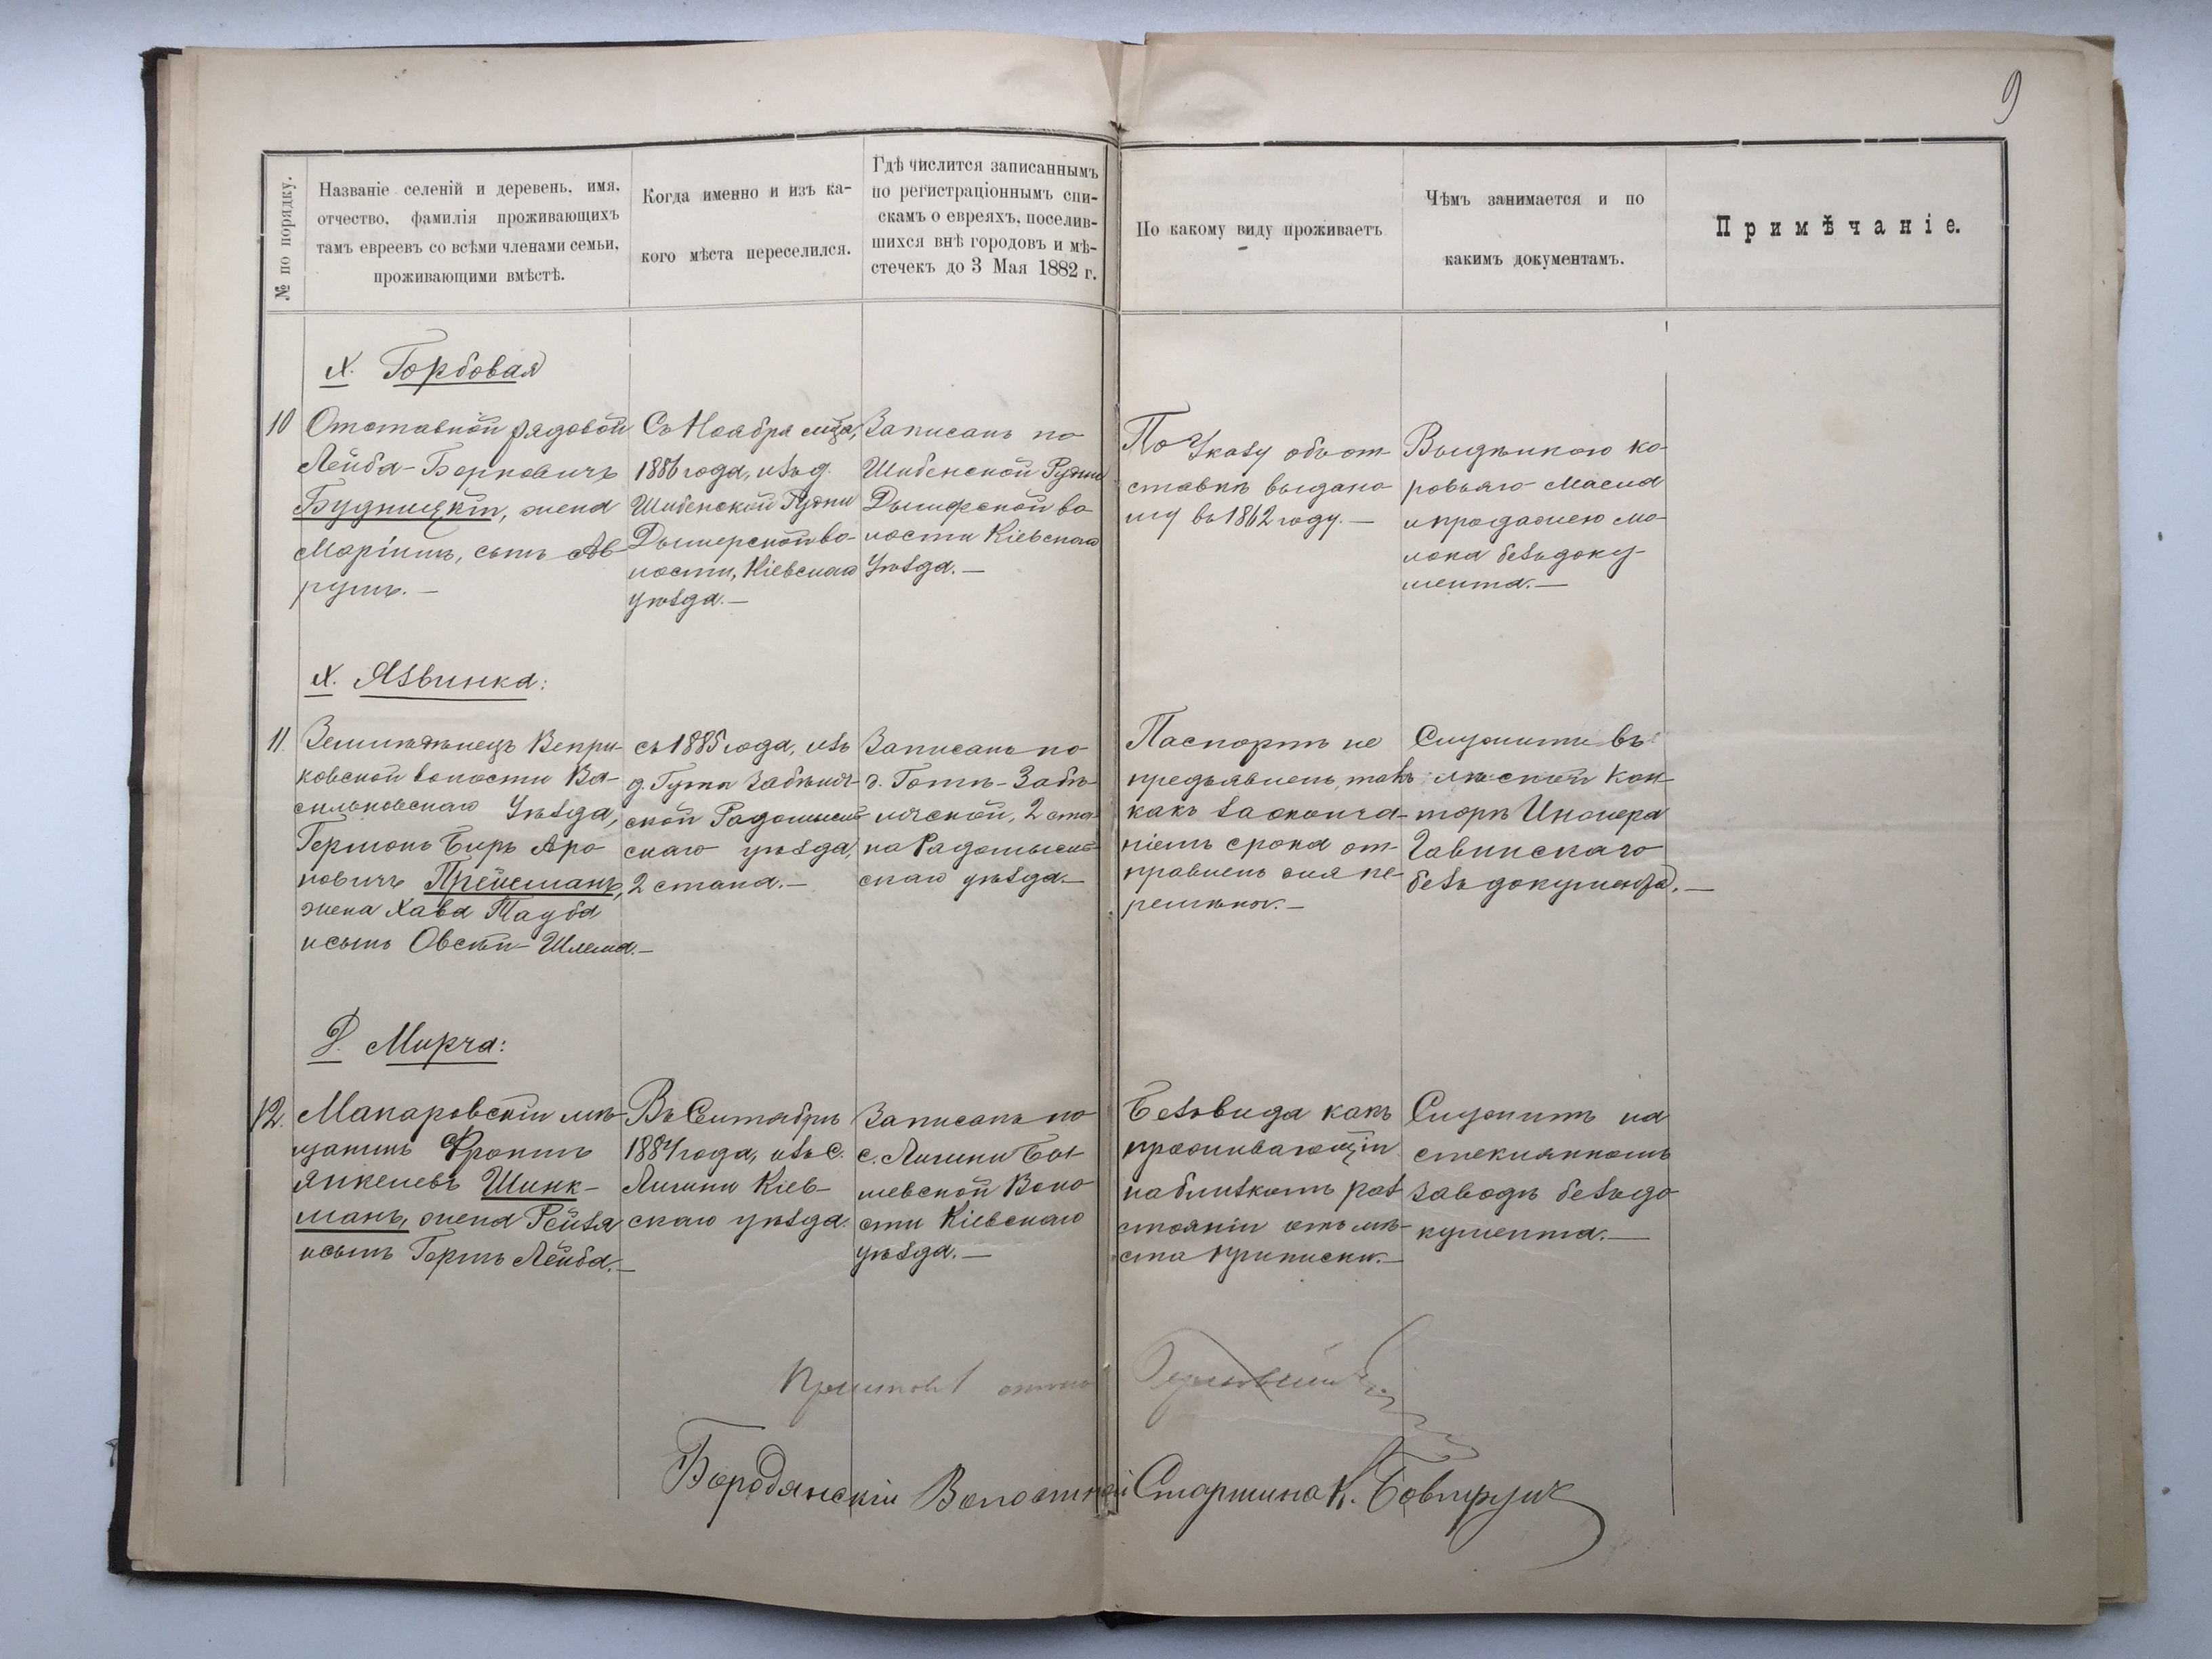 9
№ по порядку.
Названіе селеній и деревень, имя,
отчество, фамилія проживающихъ
тамъ евреевъ со всѣми членами семьи,
проживающими вмѣстѣ.
Когда именно и изъ ка-
кого мѣста переселился.
Гдѣ числится записаннымъ
по регистраціоннымъ спи-
скамъ о евреяхъ, поселив-
шихся внѣ городовъ и мѣ-
стечекъ до 3 Мая 1882 г.
По какому виду проживаетъ
Чѣмъ занимается и по
какимъ документамъ.
Примѣчаніе.
х. Горбовая
10
Отставной рядовой
Лейба-Берковичъ
Будницкій, жена
Маріимъ, сынъ Ав
румъ.—
Съ Ноября мца,
1886 года, изъ д.
Шибенской Рудни
Дымерской во-
лости, Кіевскаго
уѣзда.—
Записанъ по
Шибенской Рудни
Дымерской во
лости Кіевскаго
Уѣзда.—
По Указу объ от
ставкѣ выдано
му въ 1862 году.—
Выдѣлкою ко-
ровьяго масла
и продажею мо-
лока безъ доку-
мента.—
х. Язвинка:
11.
Земледѣлецъ Вепри-
ковской волости Ва-
сильковскаго Уѣзда,
Бирь Аро
новичъ Прейсманъ,
жена Хава Тауба
и сынъ Овсѣй-Шлема.—
съ 1885 года, изъ
д. Гута Забѣляч-
ской Радомысль
скаго уѣзда,
2 стана.—
Записанъ по
Забѣ-
лячской, 2 ста
на Радомысль
скаго уѣзда.—
Паспортъ не
предъявленъ, такъ
какъ за оконча-
ніемъ срока от-
правленъ для пе-
ремѣны.—
Служитъ въ
лѣсной кон-
торѣ Инженера
безъ документа.—
Д. Мирча:
12.
Макаровскій мѣ-
щанинъ Фроимъ
Янкелевъ Шинк-
манъ, жена Рейзя
и сынъ Гершъ Лейба.—
Въ Сентябрѣ
1884 года, изъ с.
Личини Кіев-
скаго уѣзда.
Записанъ по
с. Личини
шевской Воло
сти Кіевскаго
уѣзда.—
Безъ вида какъ
проживающій
на близкомъ раз
стояніи отъ мѣ-
ста приписки.—
Служитъ на
стеклянномъ
заводѣ безъ до
кумента.—
Бородянскій Волостной Старшина К.